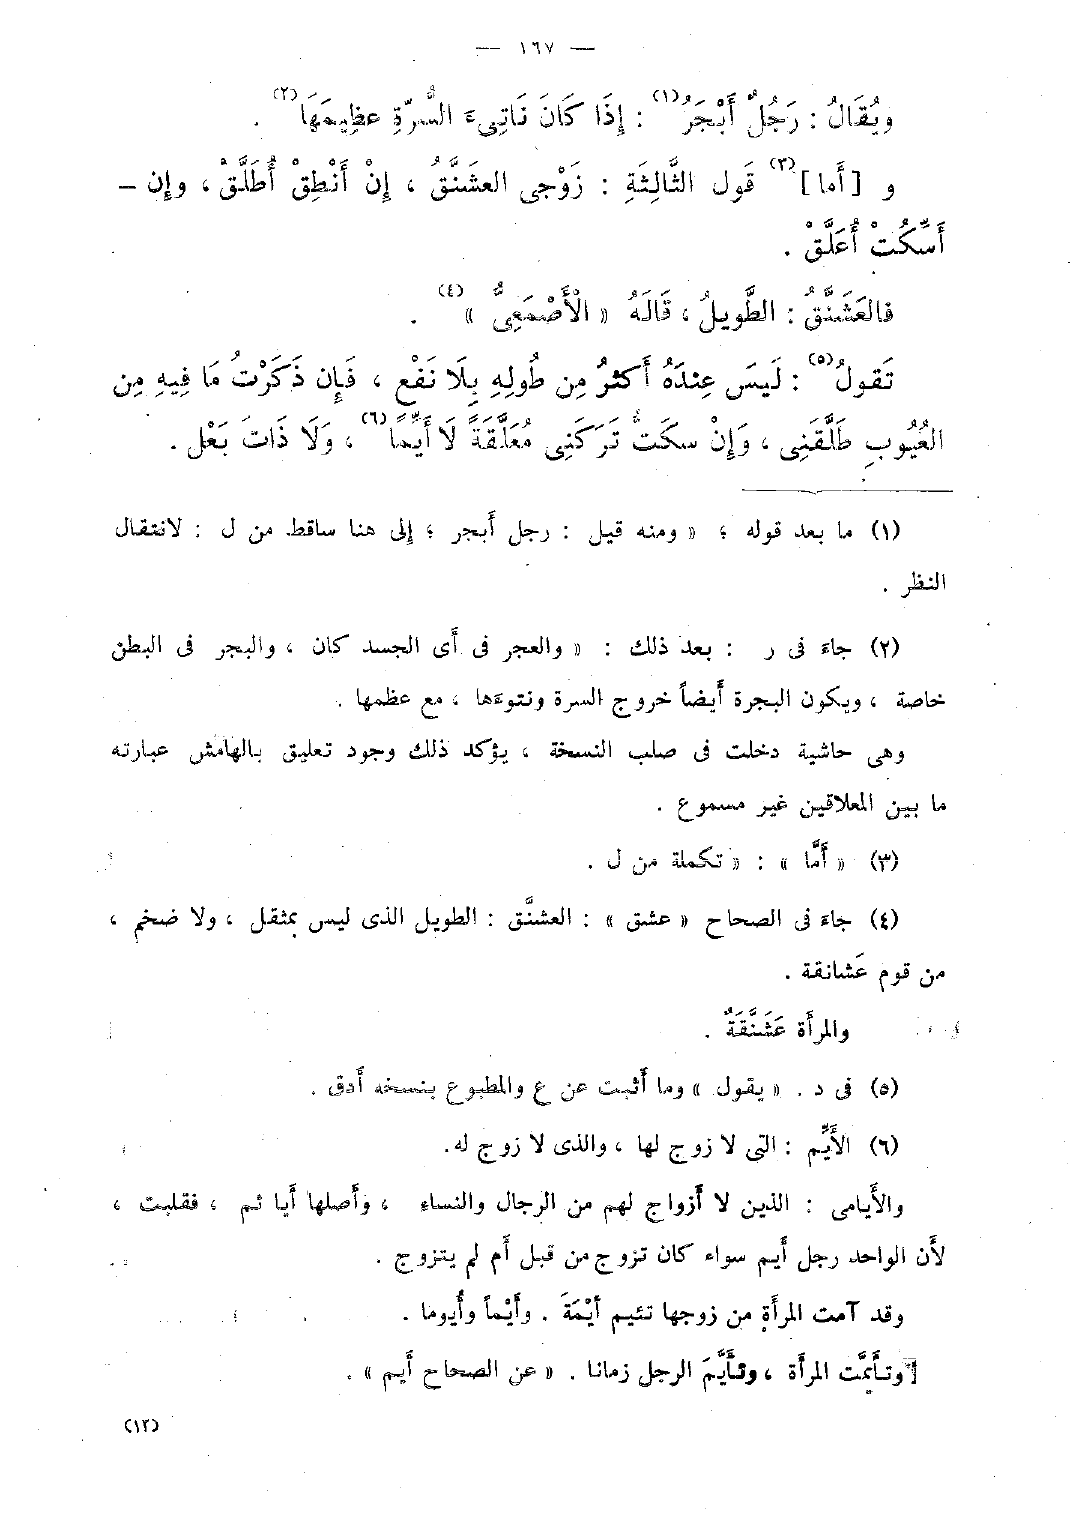 — ١٦٧ —
ويُقَالُ : رَجُلٌ أَبْجَرُ(١) : إِذَا كَانَ نَاتِىءَ السُّرّةِ عظِيمَهَا(٢) .
و [أما](٣) قَول الثَّالِثَةِ : زَوْجى العشَنَّقُ ، إِنْ أَنْطِقْ أُطَلَّقْ ، وإن –
أَسْكُتْ أُعَلَّقْ .
فالعَشَنَّقُ : الطَّويلُ ، قَالَهُ « الْأَصْمَعِىُّ »(٤) .
تَقولُ(٥) : لَيسَ عِندَهُ أَكثرُ مِن طُولِهِ بِلَا نَفْع ، فَإِن ذَكَرْتُ مَا فِيهِ مِن
العُيُوبِ طَلَّقَنِى ، وَإِنْ سكَتُّ تَرَكَنِى مُعَلَّقَةً لَا أَيِّمًا(٦) ، وَلَا ذَاتَ بَعْل .
(١) ما بعد قوله ؛ « ومنه قيل : رجل أَبجر ؛ إلى هنا ساقط من ل : لانتقال
النظر .
(٢) جاءَ فى ر : بعد ذلك : « والعجر فى أَى الجسد كان ، والبجر فى البطن
خاصة ، ويكون البجرة أَيضاً خروج السرة ونتوءها ، مع عظمها .
وهى حاشية دخلت فى صلب النسخة ، يؤكد ذلك وجود تعليق بالهامش عبارته
ما بين المعلاقين غير مسموع .
(٣) « أَمَّا » : « تكملة من ل .
(٤) جاءَ فى الصحاح « عشق » : العشنَّق : الطويل الذى ليس بمثقل ، ولا ضخم ،
من قوم عَشانقة .
والمرأَة عَشَنَّقَةٌ .
(٥) فى د . « يقول » وما أَثبت عن ع والمطبوع بنسخه أَدق .
(٦) الأَيِّم : التى لا زوج لها ، والذى لا زوج له.
والأَيامى : الذين لا أَزواج لهم من الرجال والنساء ، وأَصلها أَيا ئم ، فقلبت ،
لأَن الواحد رجل أَيم سواء كان تزوج من قبل أَم لم يتزوج .
وقد آمت المرأَة من زوجها تئيم أَيْمَةً . وأَيْماً وأُيوما .
[وتأَيَّمَت المرأَة ، وتأَيَّمَ الرجل زمانا . « عن الصحاح أَيم » .
(١٢)